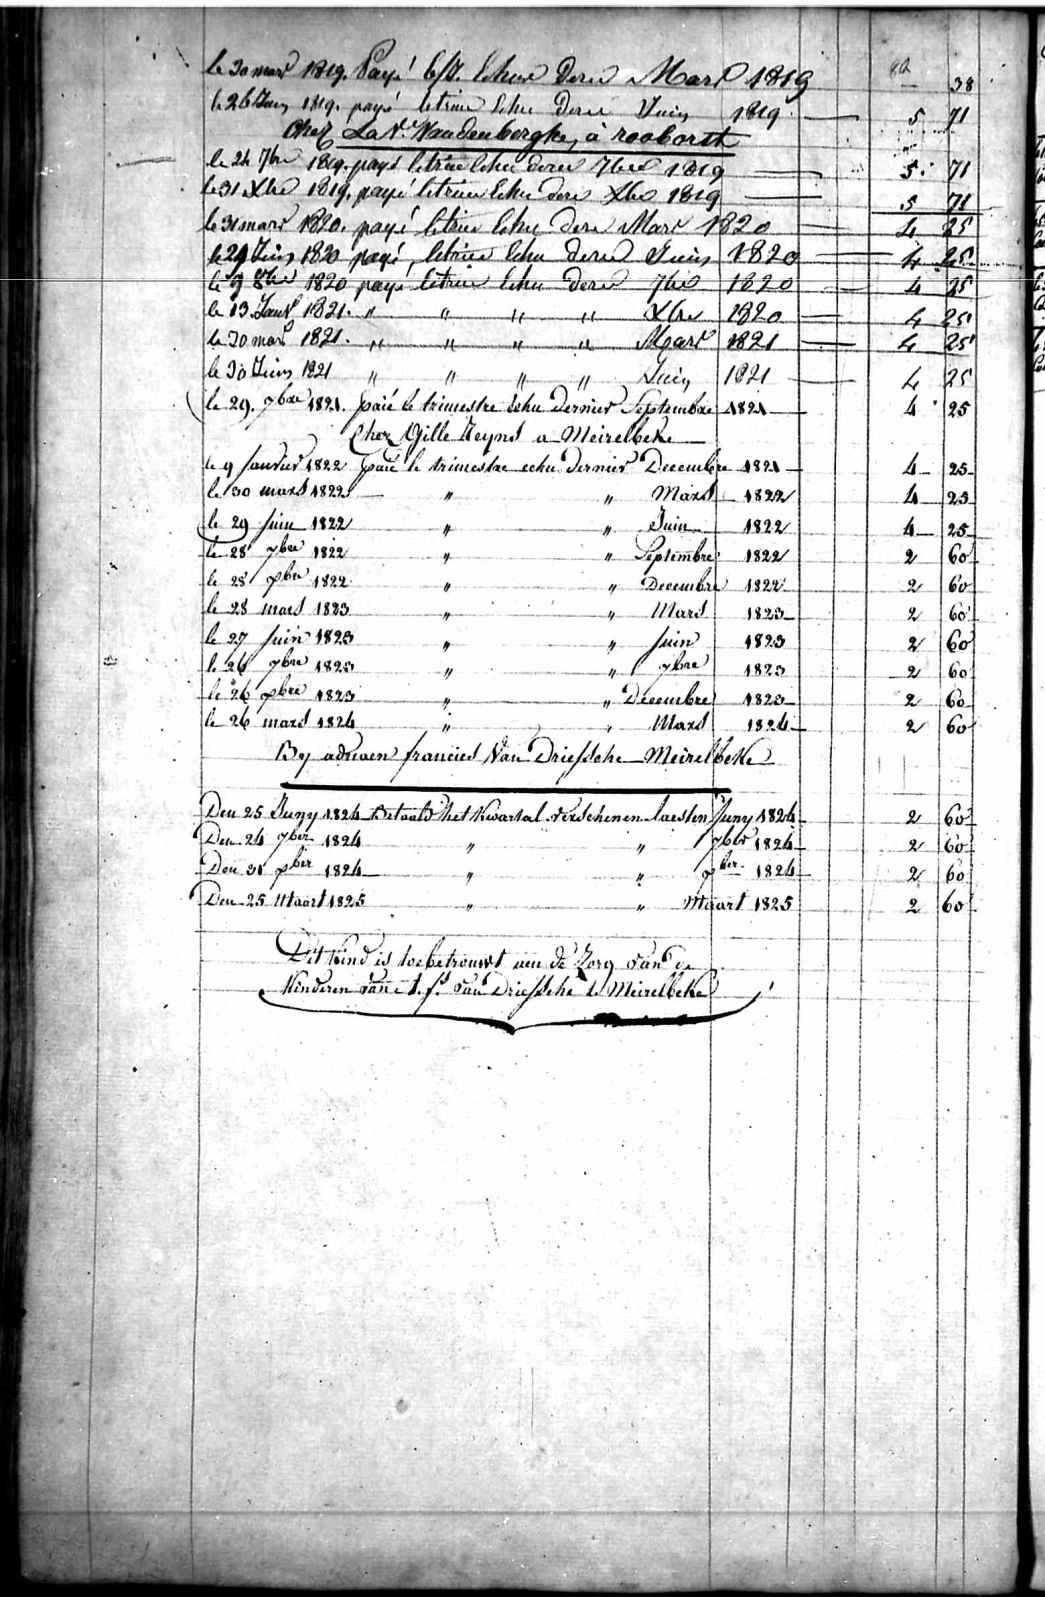 le 30 mars 1819. Payé echu dern Mars 1819 — 38
le 26 Juin 1819. payé letrim echu dern Juin 1819 — 5 71
Chez La Ve. Vandenberghe, à rooborst
le 24 7bre 1819. payé letrim echu dern 7bre 1819 — 5 71
le 31 Xbre 1819. payé letrim echu dern Xbre 1819 — 5 71
le 31 mars 1820. payé letrim echu dern Mars 1820 — 4 25
le 29 Juin 1820 payé letrim echu dern Juin 1820 — 4 25
le 9 8bre 1820 payé letrim echu dern 7bre 1820 — 4 25
le 13 Janv 1821. " " " " Xbre 1820 — 4 25
le 30 mars 1821. " " " " Mars 1821 — 4 25
le 30 Juin 1821 " " " " Juin 1821 — 4 25
le 29. 7bre 1821. paié le trimestre echu dernier Septembre 1821 — 4 25
Chez Gille Heynd a Meirelbeke
le 9 Janvier 1822 paié le trimestre echu dernier Decembre 1821 — 4 25
le 30 mars 1822 — " " Mars 1822 4 25
le 29 Juin 1822 " " Juin 1822 4 25
le 28 7bre 1822 " " Septembre 1822 2 60
le 28 Xbre 1822 " " Decembre 1822 2 60
le 28 mars 1823 " " Mars 1823 2 60
le 27 Juin 1823 " " Juin 1823 2 60
le 26 7bre 1823 " " 7bre 1823 2 60
le 26 Xbre 1823 " " Decembre 1823 2 60
le 26 mars 1824 " " Mars 1824 2 60
By adriaen francies Van Driessche Meirelbeke
Den 25 Juny 1824 Betaald het Kwartal verschenen laesten Juny 1824 2 60
Den 24 7ber 1824 " " 7ber 1824 2 60
Den 31 Xber 1824 " " Xber 1824 2 60
Den 25 Maart 1825 " " Maart 1825 2 60
Dit kind is toebetrouwt aen de Zorg van de
Kinderen van A. f. van Driessche te Meirelbeke